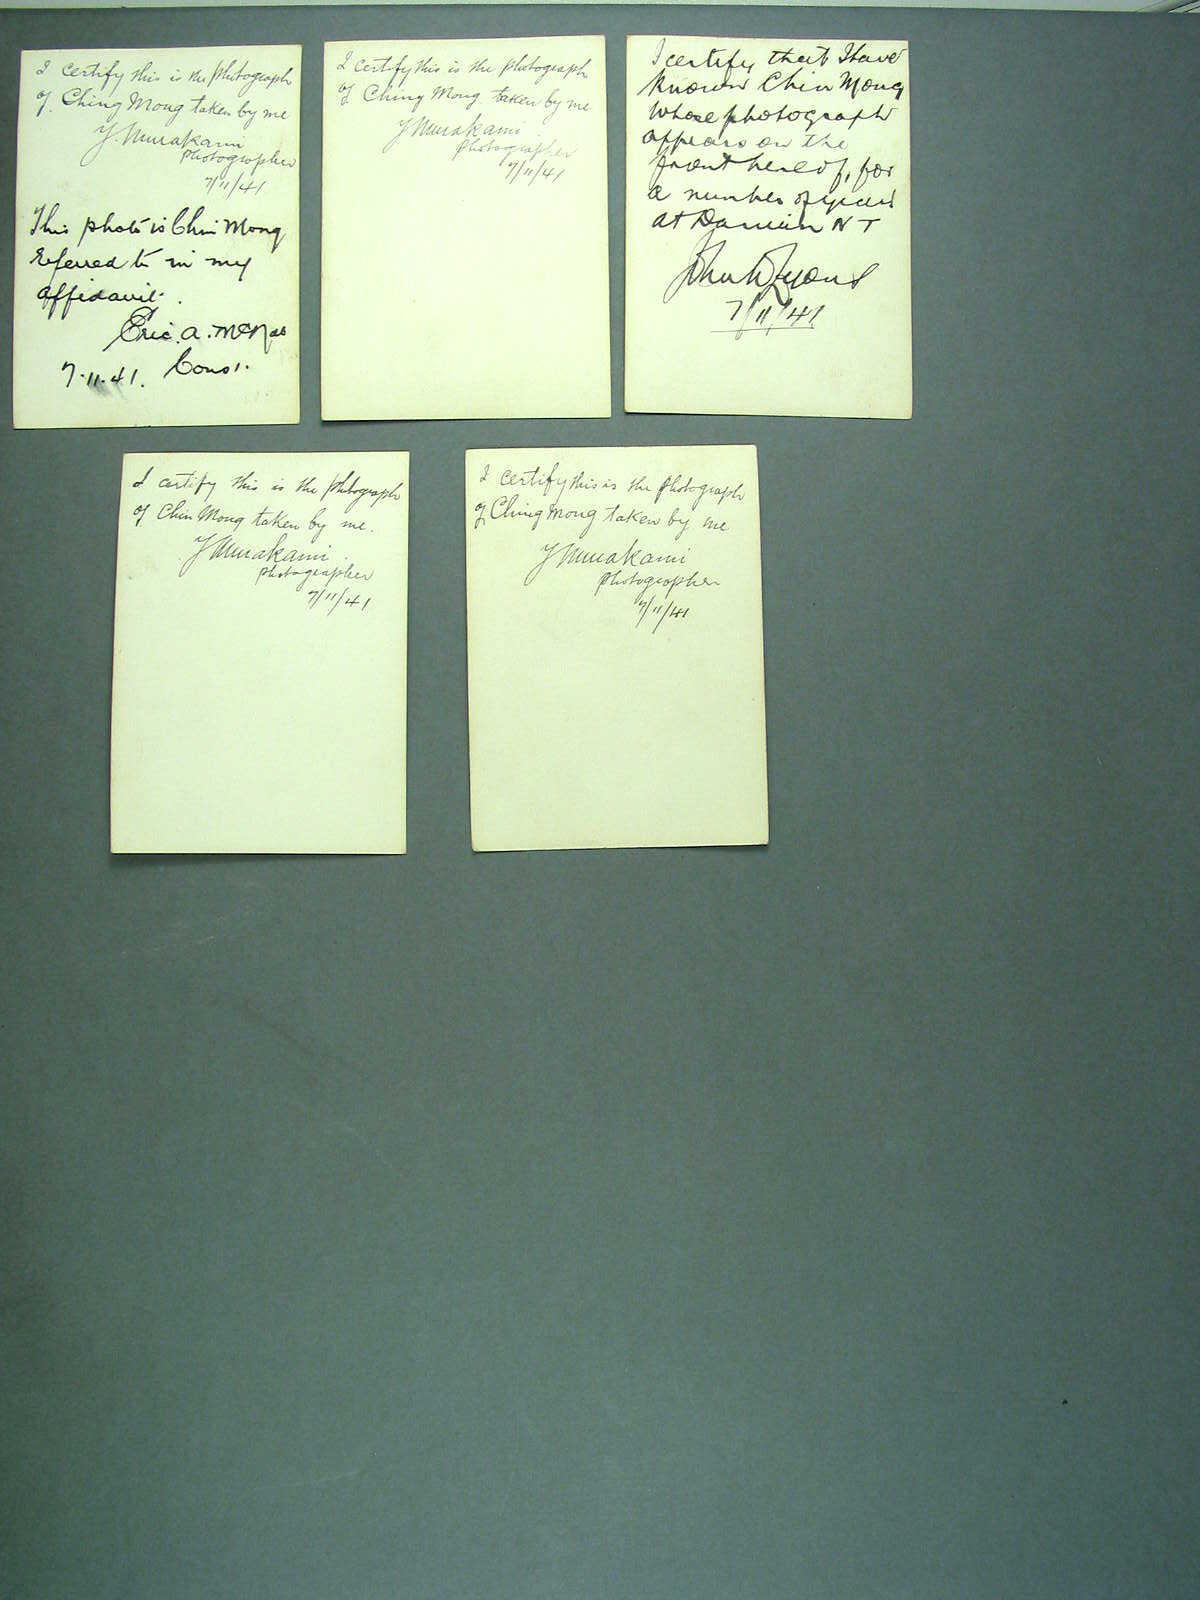 I certify this is the photograph
of Ching Mong taken by me
Y. Murakami
photographer
7/11/41
This photo is Chin Mong
referred to in my
affidavit.
Eric. A. McNab
Const.
7.11.41.
I certify this is the photograph
of Ching Mong taken by me
Y Murakami
photographer
7/11/41
I certify that I have
known Chin Mong
whose photograph
appears on the
front hereof, for
a number of years
at Darwin N T
John W Lyons
7/11/41.
I certify this is the photograph
of Chin Mong taken by me.
Y Murakami.
photographer
7/11/41
I certify this is the photograph
of Ching Mong taken by me
Y Murakami
photographer
7/11/41